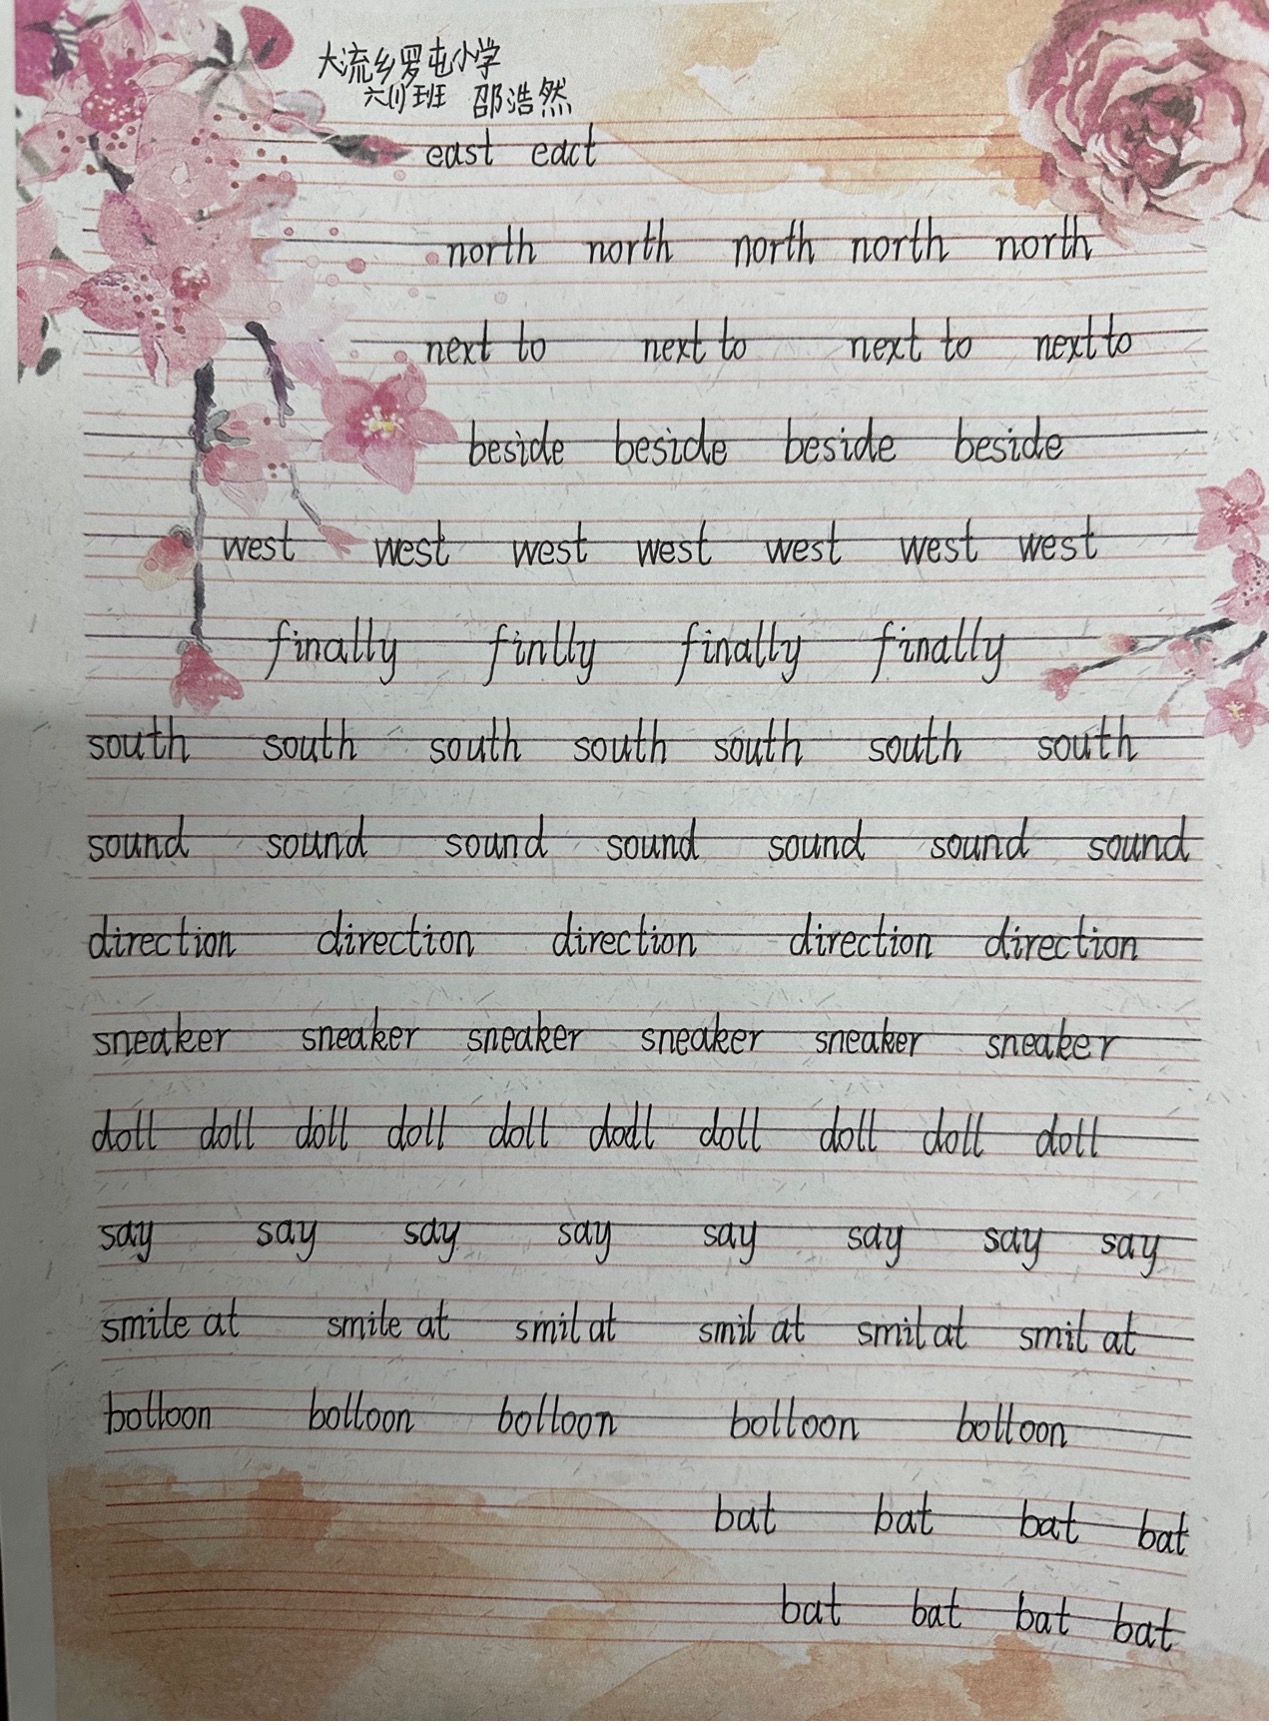 大流乡罗屯小学
六(1)班 邵浩然
east eact
north north north north north
next to next to next to next to
beside beside beside beside
west west west west west west west
finally finlly finally finally
south south south south south south south
sound sound sound sound sound sound sound
direction direction direction direction direction
sneaker sneaker sneaker sneaker sneaker sneaker
doll doll doll doll doll dodl doll doll doll doll
say say say say say say say say
smile at smile at smil at smil at smil at smil at
bolloon bolloon bolloon bolloon bolloon
bat bat bat bat
bat bat bat bat